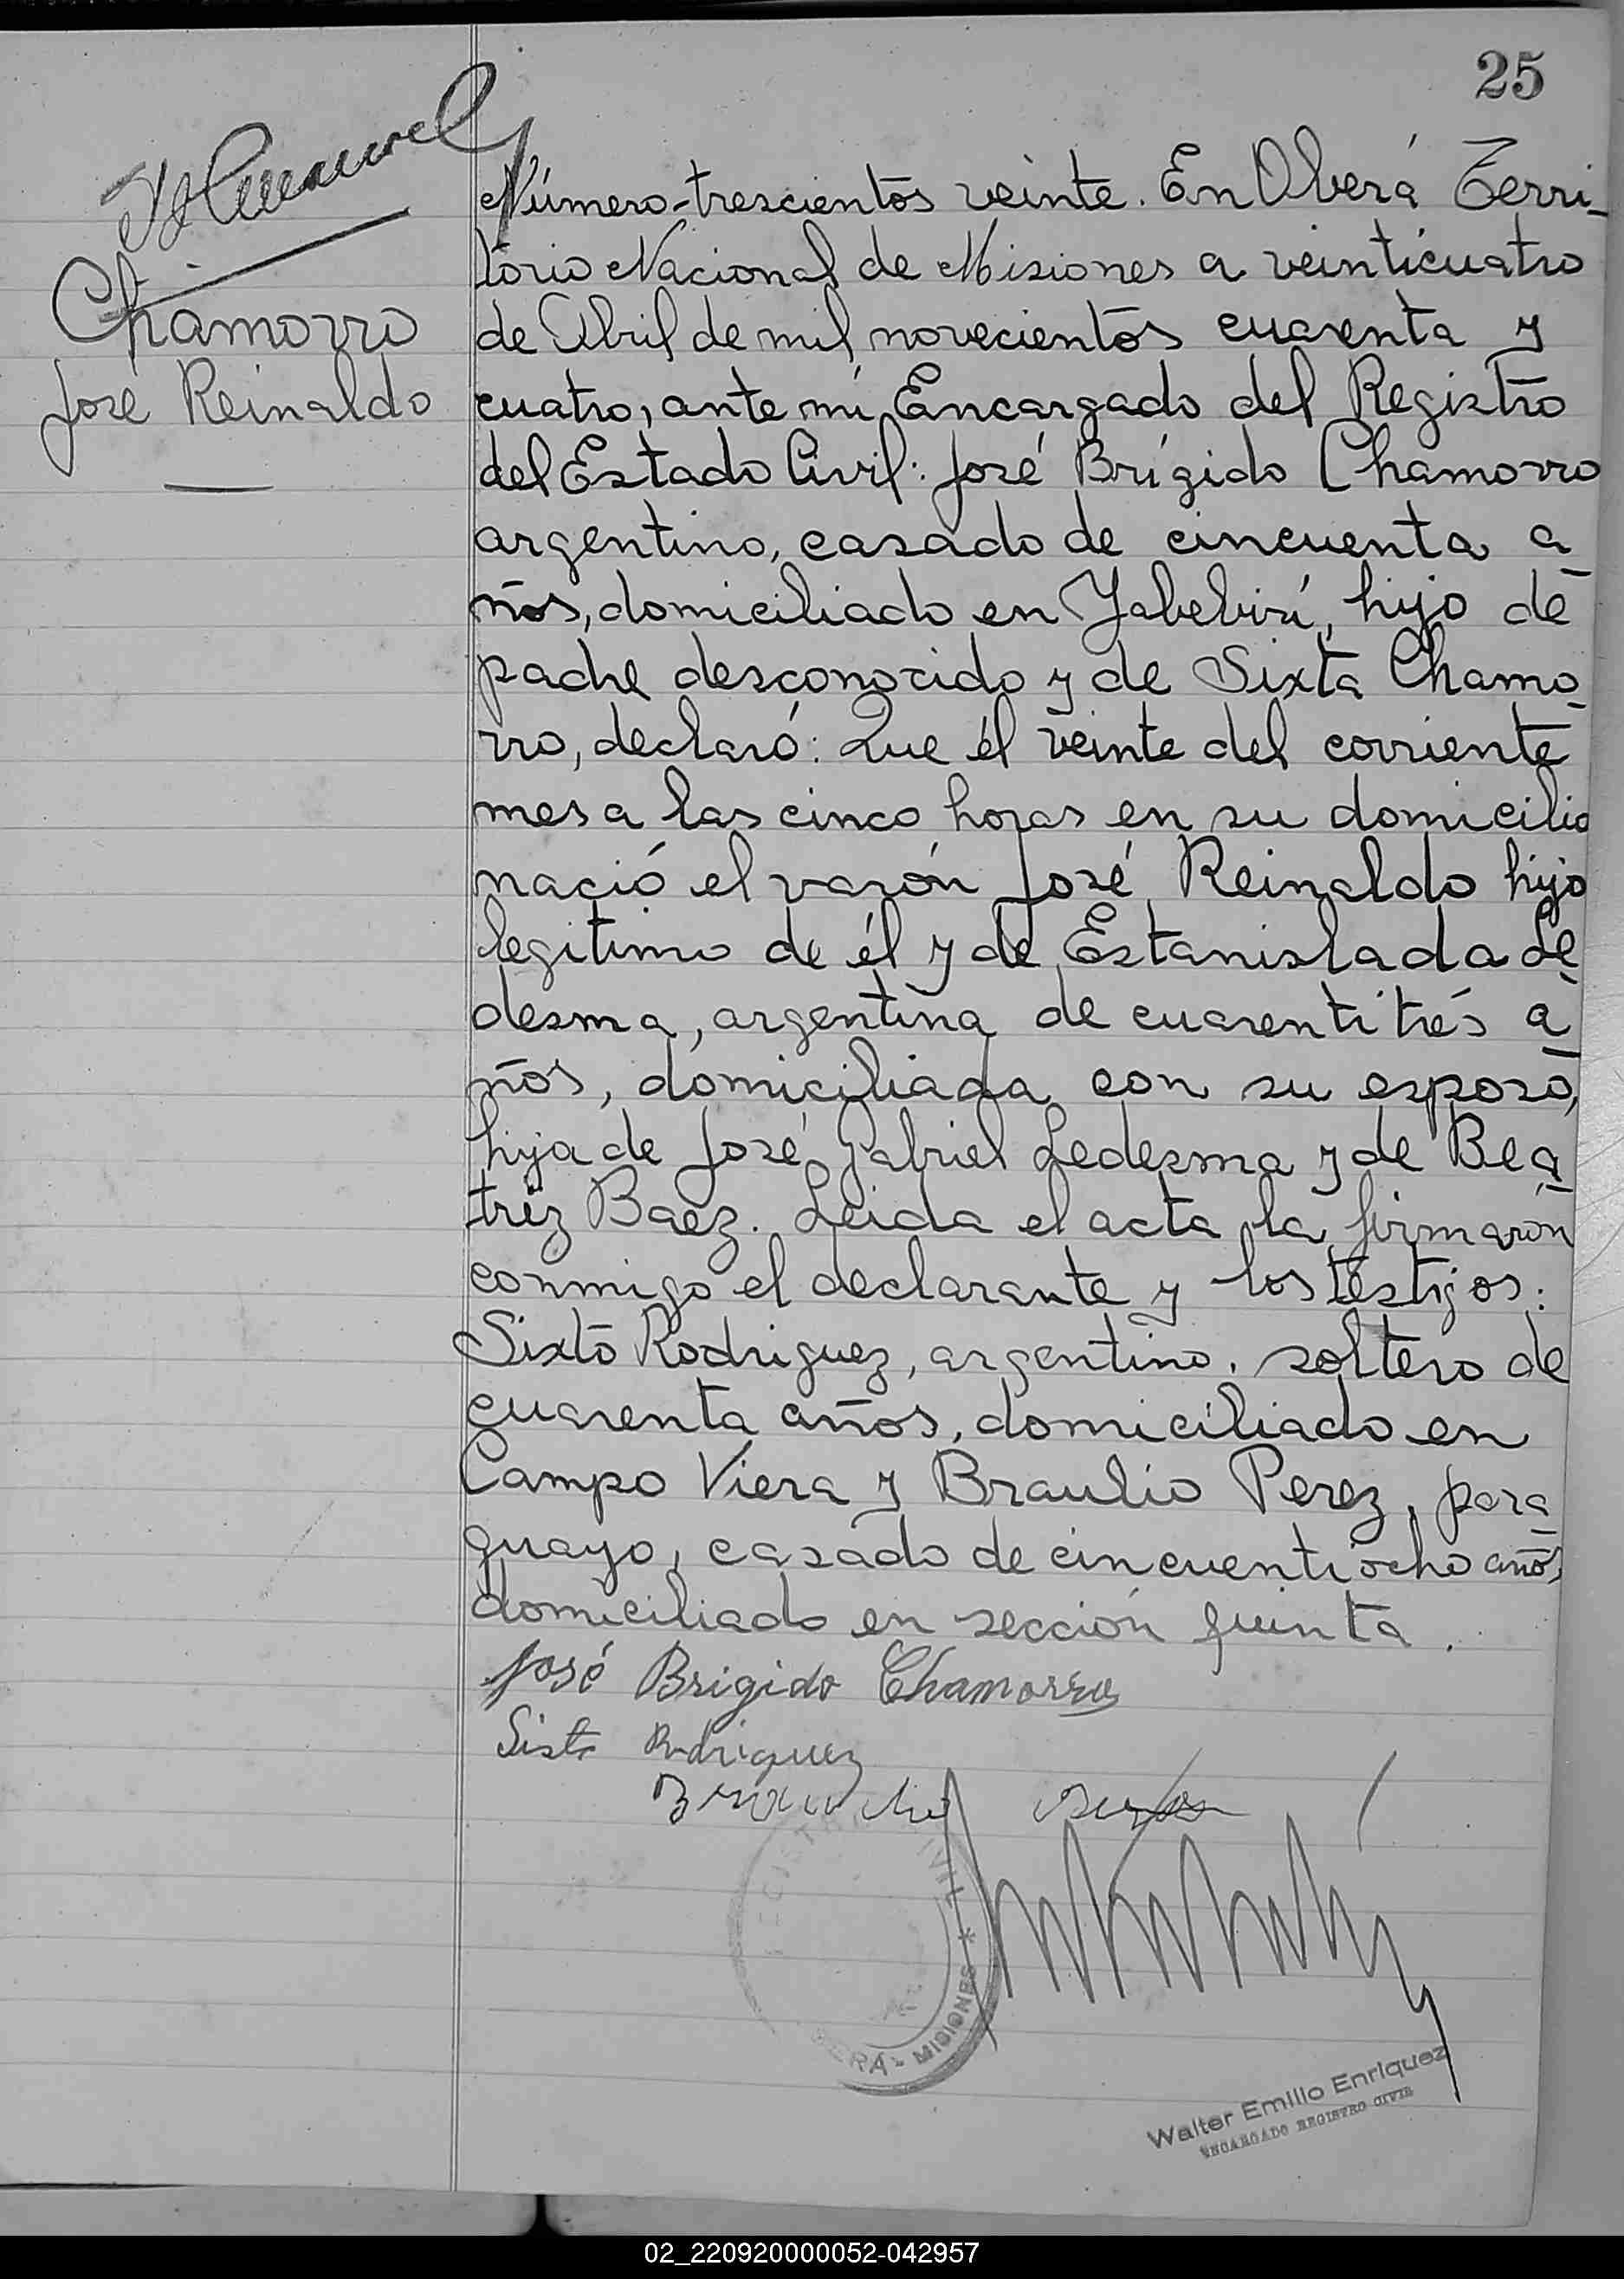 25
Chamorro
José Reinaldo
Número trescientos veinte. En Oberá Terri-
torio Nacional de Misiones a veinticuatro
de Abril de mil novecientos cuarenta y
cuatro, ante mí Encargado del Registro
del Estado Civil: José Brígido Chamorro
argentino, casado de cincuenta a-
ños, domiciliado en Yabebirí, hijo de
padre desconocido y de Sixta Chamo-
rro, declaró: Que él veinte del corriente
mes a las cinco horas en su domicilio
nació el varón José Reinaldo hijo
legitimo de él y de Estanislada Le-
desma, argentina de cuarentitrés a-
ños, domiciliada con su esposo,
hija de José Gabriel Ledesma y de Bea-
triz Baez. Leida el acta la firmarón
conmigo el declarante y los testigos:
Sixto Rodriguez, argentino, soltero de
cuarenta años, domiciliado en
Campo Viera y Braulio Perez, para-
guayo, casado de cincuentiocho años,
domiciliado en sección quinta.
José Brigido Chamorro
Sixto Rodriguez
MISIONES *
Walter Emilio Enriquez
ENCARGADO REGISTRO CIVIL
02_220920000052-042957